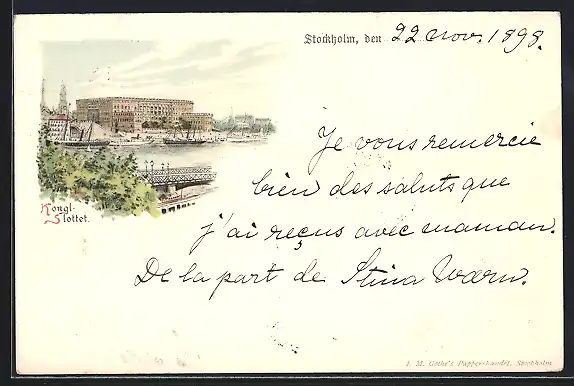 Stockholm, den 22 nov. 1898.
Je vous remercie
bien des saluts que
j'ai reçus avec maman.
De la part de Stina Warn.
Kongl.
Slottet.
I. M. Göthe's Pappershandel, Stockholm